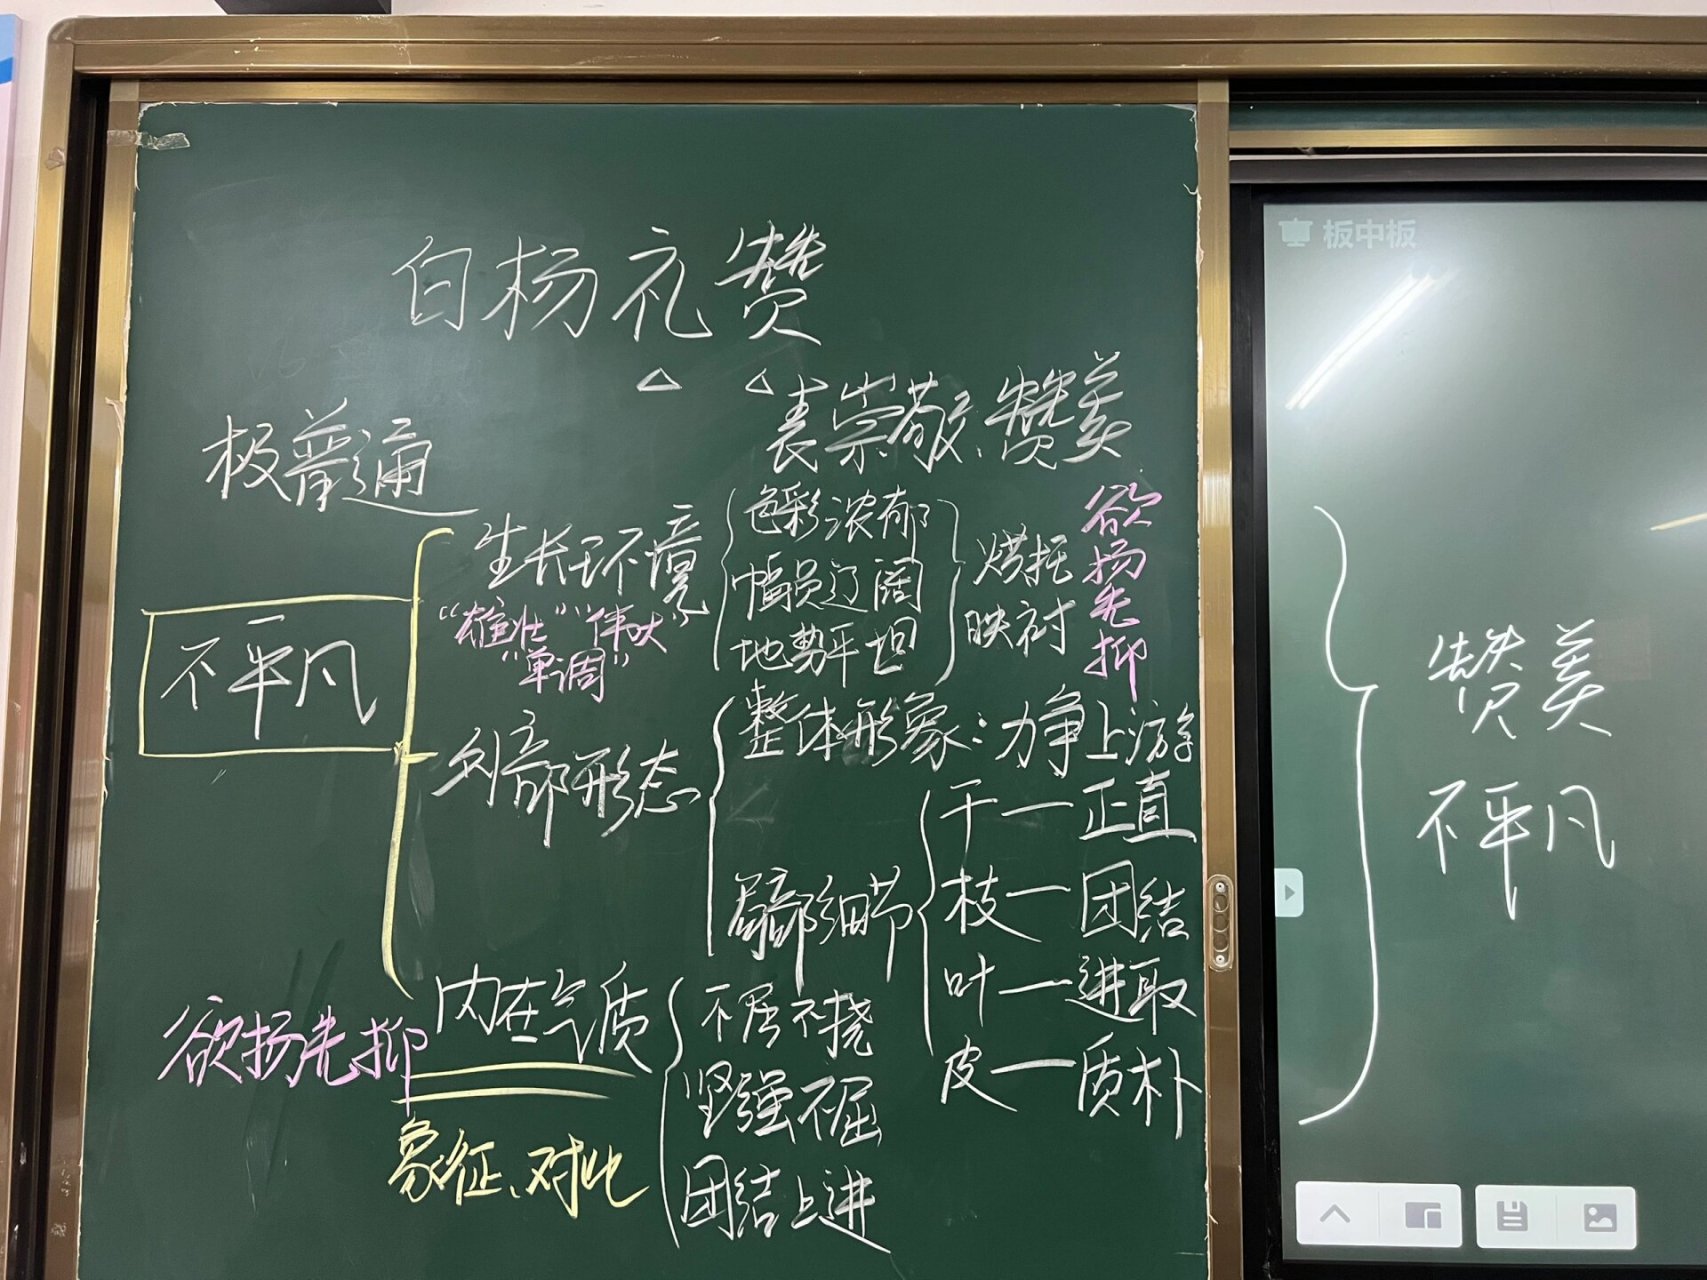 白杨礼赞
表崇敬、赞美
极普通
不平凡
生长环境
“雄壮”“伟大”
“单调”
色彩浓郁
幅员辽阔
地势平坦
烘托
映衬
欲扬先抑
外部形态
整体形象：力争上游
局部细节
干一正直
枝一团结
叶一进取
皮一质朴
内在气质
不屈不挠
坚强不屈
团结上进
欲扬先抑
象征、对比
板中板
赞美
不平凡